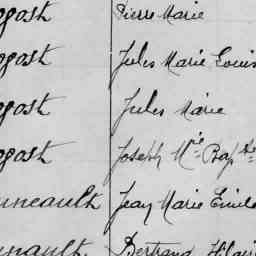 ogost Pierre Marie
ogost Jules Marie Louis
ogost Jules Marie
ogost Joseph Mie Bapte
uneault Jean Marie Emile
Bertrand Hilai